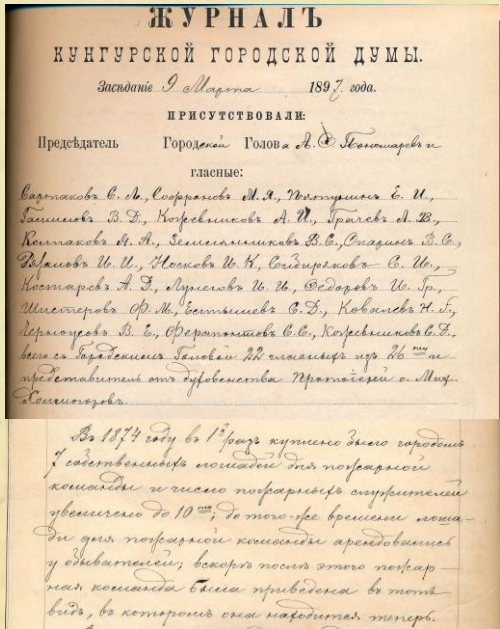 ЖУРНАЛЪ
КУНГУРСКОЙ ГОРОДСКОЙ ДУМЫ.
Засѣданіе 9 Марта 1897 года.
ПРИСУТСТВОВАЛИ:
Предсѣдатель Городской Голова А. Пономаревъ и
гласные:
Сартаковъ С. Л., Софроновъ М. Я., Пятунинъ Е. И.,
В. Д., Кожевниковъ А. И., Грачевъ Л. В.,
Колпаковъ А. А., Земляниковъ В. Е., Спаринъ В. С.,
И. И., Носковъ И. К., Сибиряковъ С. И.,
Костаревъ А. Д., Лунеговъ И. И., Федоровъ И. Гр.,
Шестеровъ Ф. М., Естьшевъ С. Д., Ковалевъ Н. Г.,
Черноусовъ В. Е., Ферапонтовъ С. С., Кожевниковъ С. Д.,
всего съ Городскимъ Головой 22 гласныхъ изъ 26ти и
представитель отъ духовенства Протоіерей о. Мих.
Холмогоровъ.
Въ 1874 году въ 1й разъ куплено было городомъ
7 собственныхъ лошадей для пожарной
команды и число пожарныхъ служителей
увеличено до 10ти; до того-же времени лоша-
ди для пожарной команды арендовались
у обывателей; вскорѣ послѣ этого пожар-
ная команда была приведена въ тотъ
видъ, въ которомъ она находится теперь.